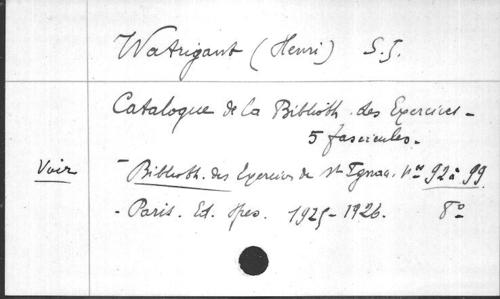 Watrigant (Henri) S.J.
Catalogue de la Biblioth. des Exercices -
5 fascicules -
Voir - Biblioth. des Exercices de St Ignace. Nos 92 à 99
- Paris. Ed. Spes. 1925-1926. 8°